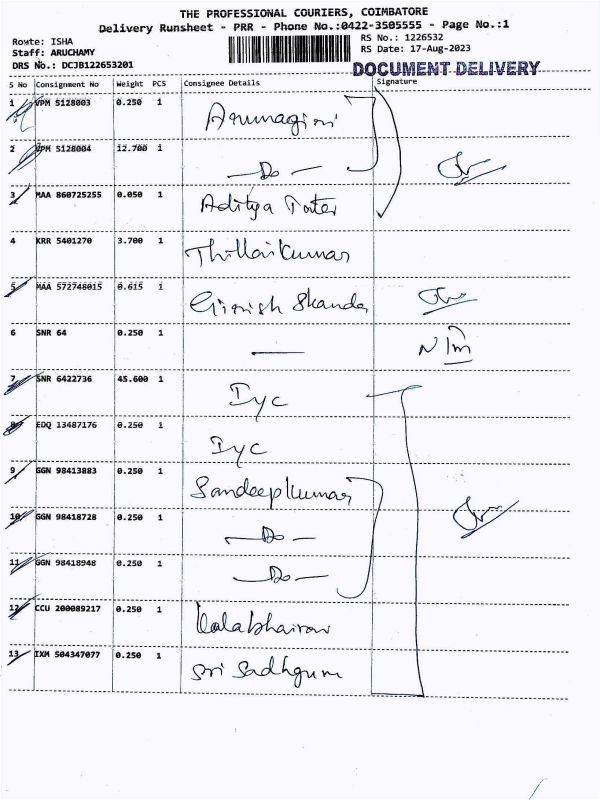 THE PROFESSIONAL COURIERS, COIMBATORE
Delivery Runsheet - PRR - Phone No.:0422-3505555 - Page No.:1
Route: ISHA
Staff: ARUCHAMY
DRS No.: DCJB122653201
RS No.: 1226532
RS Date: 17-Aug-2023
DOCUMENT DELIVERY
S No Consignment No Weight PCS Consignee Details Signature
1 VPM 5128003 0.250 1 Arumagiri
2 VPM 5128004 12.700 1 — Do —
3 MAA 860725255 0.050 1 Aditya
4 KRR 5401270 3.700 1 Thillaikumar
5 MAA 572748015 0.615 1 Girish Skanda
6 SNR 64 0.250 1 —
7 SNR 6422736 45.600 1 Iyc
8 EDQ 13487176 0.250 1 Iyc
9 GGN 98413883 0.250 1 Sandeepkumar
10 GGN 98418728 0.250 1 — Do —
11 GGN 98418948 0.250 1 — Do —
12 CCU 200089217 0.250 1 Kalabhairav
13 IXM 504347077 0.250 1 Sri Sadhguru